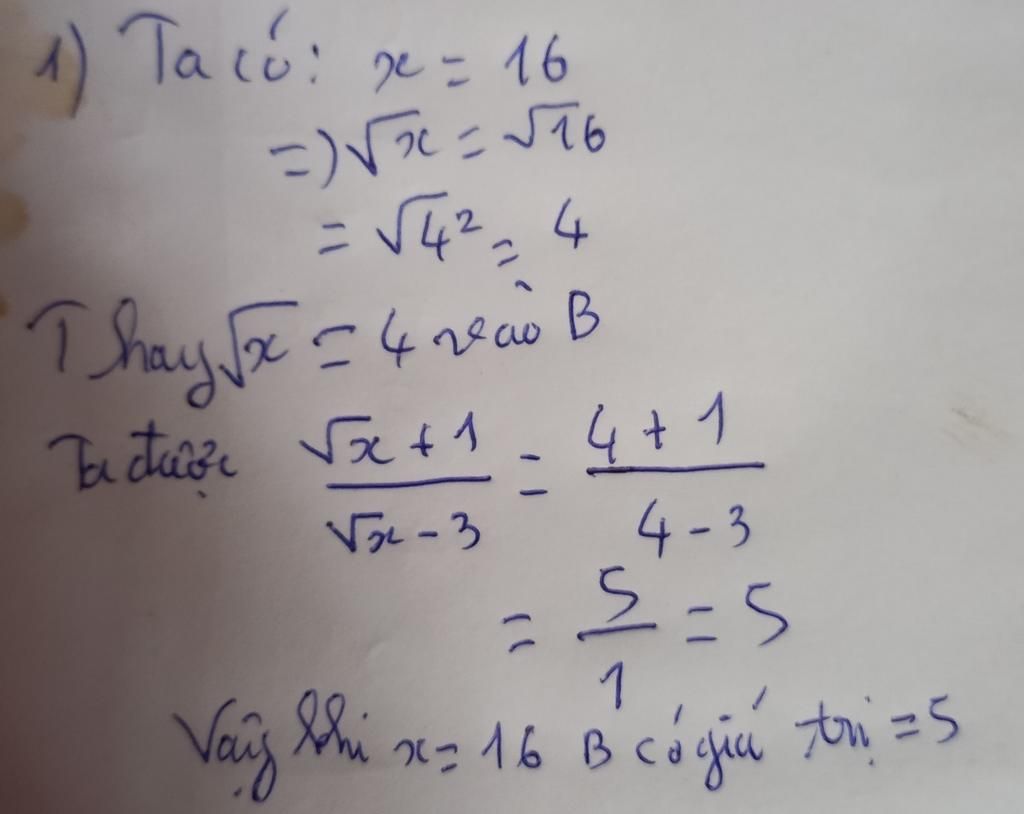 1) Ta có: x = 16
=) √x = √16
= √4² = 4
Thay √x = 4 vào B
Ta được (√x + 1)/(√x - 3) = (4 + 1)/(4 - 3)
= 5/1 = 5
Vậy khi x = 16 B có giá trị = 5